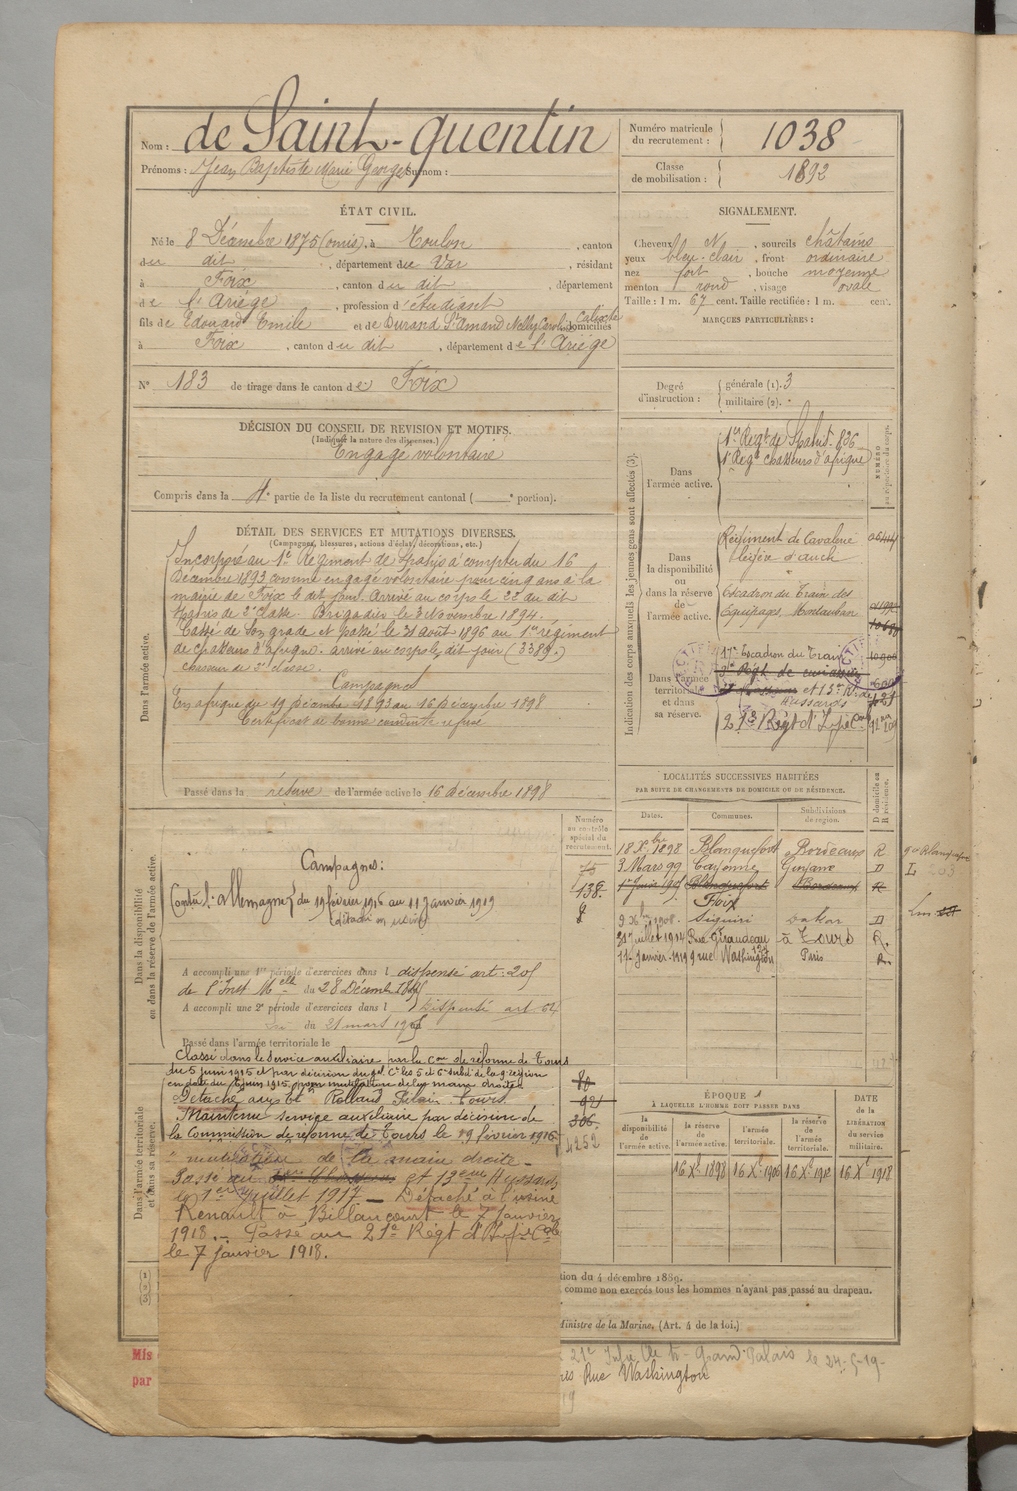 Nom : de Saint-quentin
Prénoms : Jean Baptiste Marie Georges Surnom :
Numéro matricule du recrutement : 1038
Classe de mobilisation : 1892
ÉTAT CIVIL.
Né le 8 Décembre 1875 (omis), à Toulon, canton
du dit, département du Var, résidant
à Foix, canton du dit, département
de l'Ariège, profession d'étudiant
fils de Edouard Emile et de Durand St Amand Nelly Caroline Calixte domiciliés
à Foix, canton du dit, département de l'Ariège
N° 183 de tirage dans le canton de Foix
SIGNALEMENT.
Cheveux N, sourcils châtains
yeux bleu-clair, front ordinaire
nez fort, bouche moyenne
menton rond, visage ovale
Taille : 1 m. 67 cent. Taille rectifiée : 1 m. cent.
MARQUES PARTICULIÈRES :
Degré d'instruction : générale (1). 3
militaire (2).
DÉCISION DU CONSEIL DE REVISION ET MOTIFS.
(Indiquer la nature des dispenses.)
Engagé volontaire
Compris dans la 4e partie de la liste du recrutement cantonal ( e portion).
DÉTAIL DES SERVICES ET MUTATIONS DIVERSES.
(Campagnes, blessures, actions d'éclat, décorations, etc.)
Dans l'armée active.
Incorporé au 1er Régiment de Spahis à compter du 16
Décembre 1893 comme engagé volontaire pour cinq ans à la
mairie de Foix le dit jour. Arrivé au corps le 22 du dit
Spahis de 2e classe. Brigadier le 3 Novembre 1894.
Cassé de son grade et passé le 31 août 1896 au 1er régiment
de chasseurs d'afrique. arrivé au corps le dit jour (3389.)
chasseur de 2e classe.
Campagnes
En afrique du 19 Décembre 1893 au 16 Décembre 1898
Certificat de bonne conduite refusé
Passé dans la réserve de l'armée active le 16 Décembre 1898
Indication des corps auxquels les jeunes gens sont affectés (3).
Dans l'armée active.
1er Régt de Spahis. 836
1er Régt chasseurs d'afrique
NUMÉRO
Dans la disponibilité ou dans la réserve de l'armée active.
Régiment de Cavalerie
légère d'auch
Escadron du Train des
Equipages, Montauban
Dans l'armée territoriale et dans sa réserve.
17e Escadron du Train
et 13e
Hussards
21e Régt d'Infie Cale
LOCALITÉS SUCCESSIVES HABITÉES
PAR SUITE DE CHANGEMENTS DE DOMICILE OU DE RÉSIDENCE.
Dates. Communes. Subdivisions de région. D domicile ou R résidence.
18 Xbre 1898 Blanquefort Bordeaux R
3 Mars 99 Cayenne Guyane D
Blanquefort Bordeaux R
Foix
1908 Siguiri Dakar D
31 Juillet 1914 Rue Giraudeau à Tours R.
17 janvier 1919 9 rue Washington Paris R.
Numéro au contrôle spécial du recrutement.
138.
Dans la disponibilité et dans la réserve de l'armée active.
Campagnes :
Contre l'allemagne du 19 février 1916 au 11 janvier 1919
(détaché en usine)
A accompli une 1re période d'exercices dans l dispensé art. 205
de l'Inst Melle du 28 Décemb 1895
A accompli une 2e période d'exercices dans l Dispensé art 64
du 21 mars
Passé dans l'armée territoriale le
Dans l'armée territoriale et dans sa réserve.
Classé dans le service auxiliaire par la Con de réforme de Tours
du 5 juin 1915 et par décision du gal Ct les 5 et 6e subd de la 9e région
en date du 6 juin 1915 pour mutilation de la main droite
Détaché aux Ets Rolland Pilain Tours.
Maintenu service auxiliaire par décision de
la Commission de réforme de Tours le 19 février 1916
"mutilation de la main droite"
Passé au et 13eme Hussards
le 1er Juillet 1917 — Détaché à l'usine
Renault à Billancourt le 7 Janvier
1918. — Passé au 21e Régt d'Infie Cale
le 7 Janvier 1918.
80
921
306.
4252
ÉPOQUE
À LAQUELLE L'HOMME DOIT PASSER DANS
la disponibilité de l'armée active. la réserve de l'armée active. l'armée territoriale. la réserve de l'armée territoriale.
DATE de la LIBÉRATION du service militaire.
16 Xe 1898 16 Xe 1906 16 Xe 1912 16 Xe 1918
tion du 4 décembre 1889.
comme non exercés tous les hommes n'ayant pas passé au drapeau.
Ministre de la Marine, (Art. 4 de la loi.)
Mis
par
Grand Palais le 24-5-19-
Rue Washington